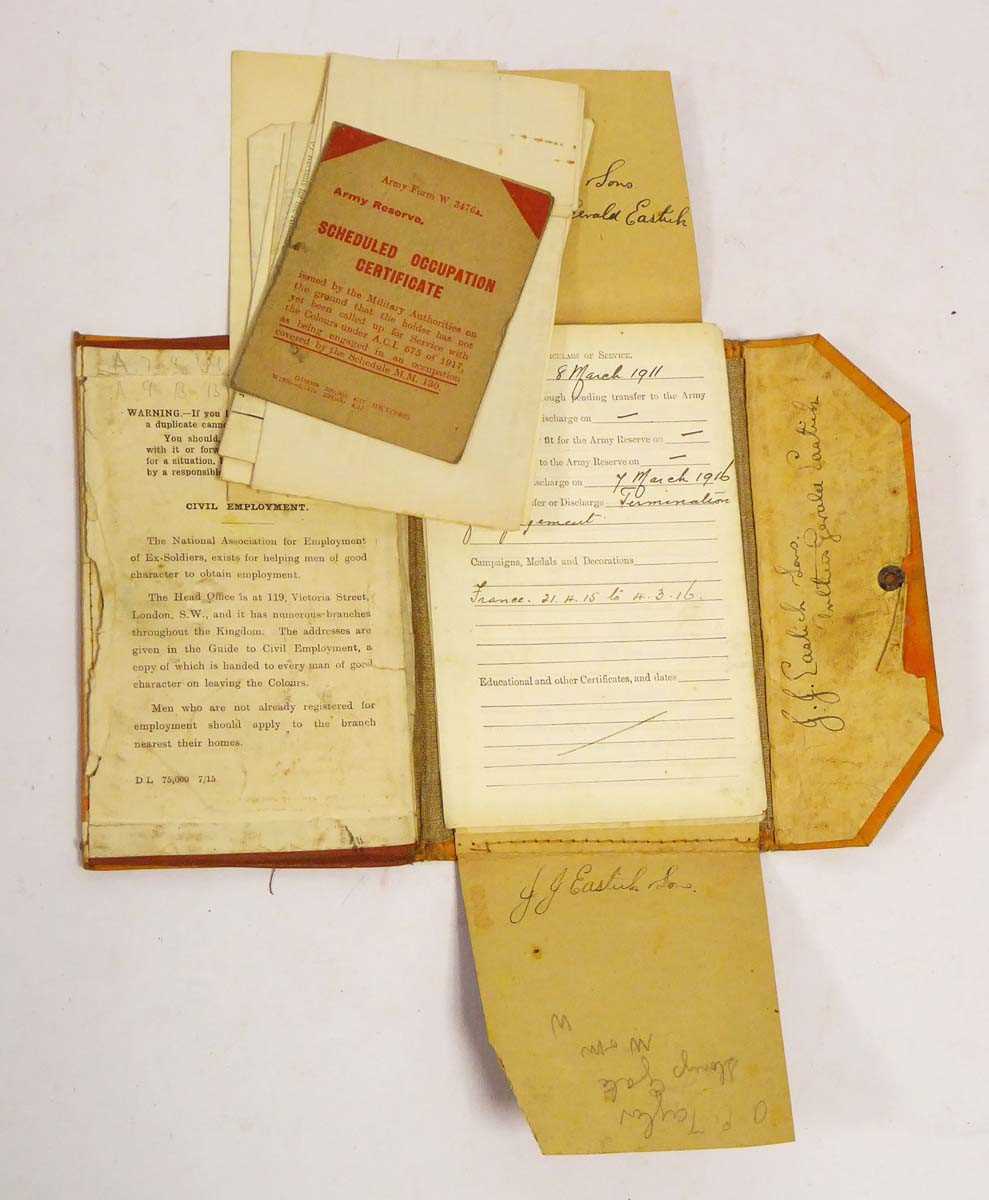 Sons
Gerald Eastick
Army Form W. 3476A.
Army Reserve.
SCHEDULED OCCUPATION
CERTIFICATE
issued by the Military Authorities on
the ground that the holder has not
yet been called up for Service with
the Colours under A.C.I. 675 of 1917,
as being engaged in an occupation
covered by the Schedule M.M. 130.
WARNING.—If you
a duplicate
You should,
with it or
for a situation,
by a
CIVIL EMPLOYMENT.
The National Association for Employment
of Ex-Soldiers, exists for helping men of good
character to obtain employment.
The Head Office is at 119, Victoria Street,
London, S.W., and it has numerous branches
throughout the Kingdom. The addresses are
given in the Guide to Civil Employment, a
copy of which is handed to every man of good
character on leaving the Colours.
Men who are not already registered for
employment should apply to the branch
nearest their homes.
D L 75,000 7/15
of Service.
8 March 1911
pending transfer to the Army
on —
fit for the Army Reserve on —
to the Army Reserve on —
on 7 March 1916
or Discharge Termination
Campaigns, Medals and Decorations
France. 21.4.15 to 4.3.16.
Educational and other Certificates, and dates
J. J. Eastick Sons.
Gerald Eastick
J J Eastick & Sons.
Taylor
Gate